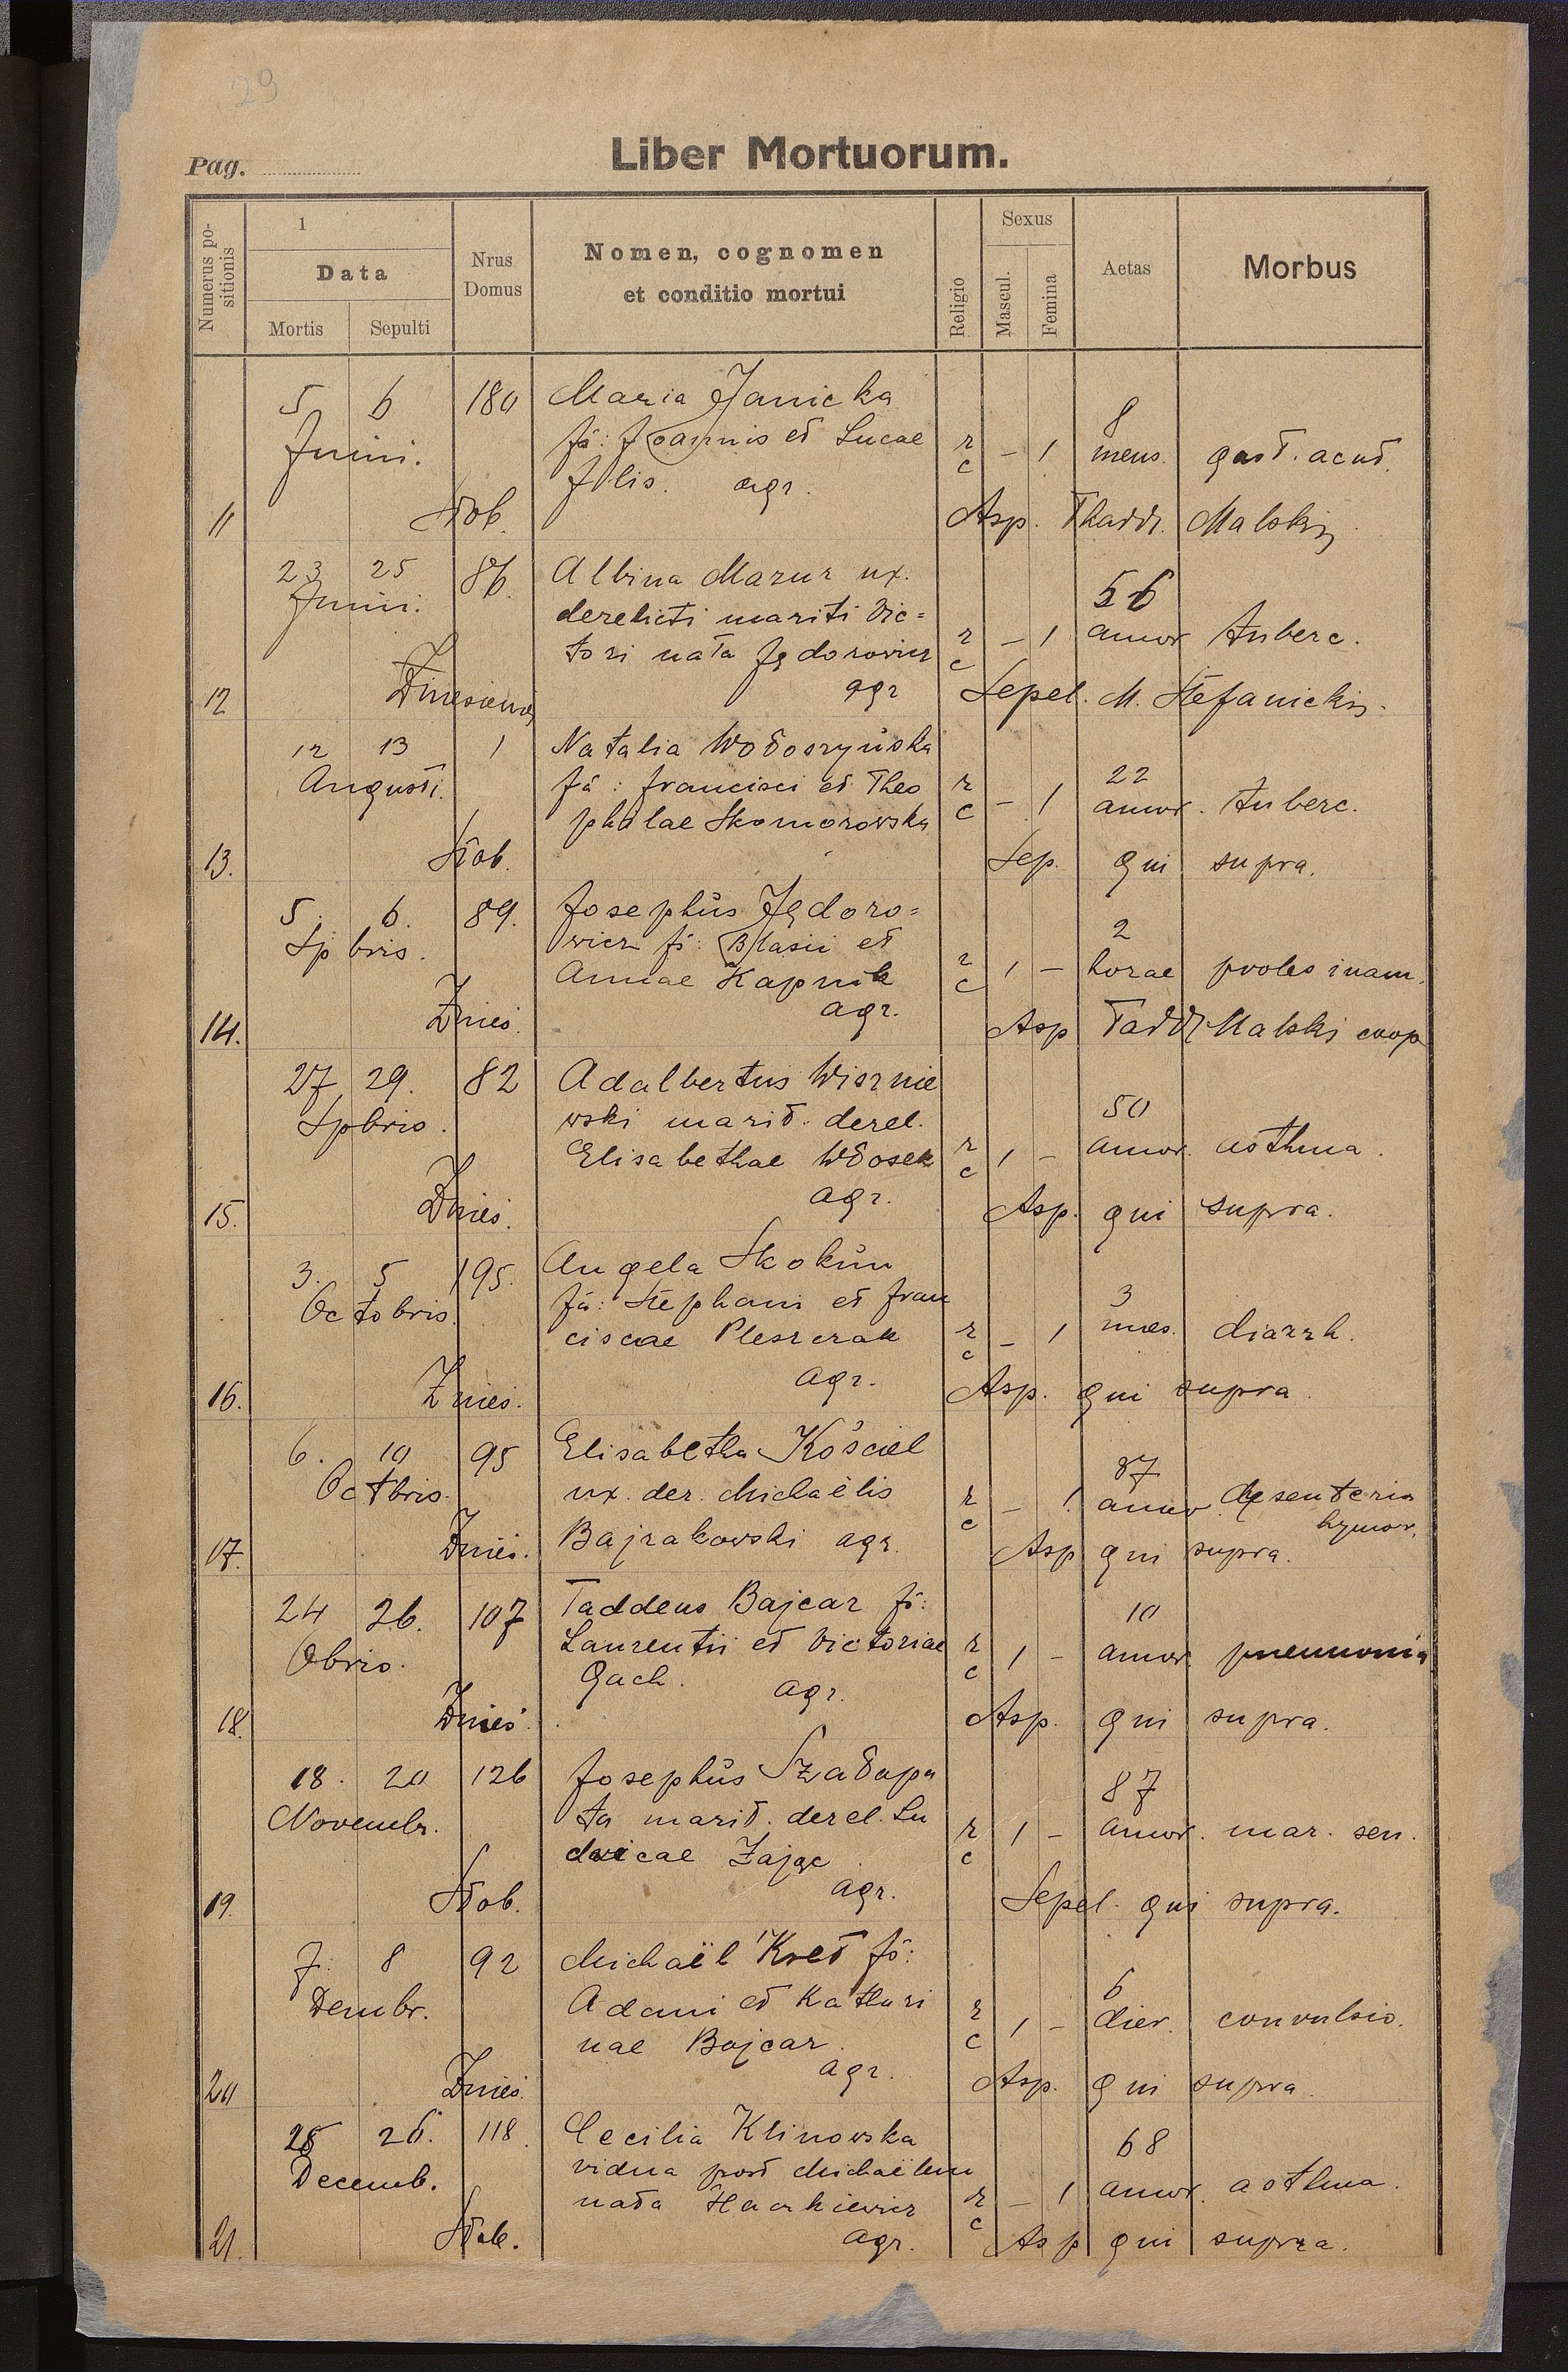 29
Pag.
Liber Mortuorum.
Numerus positionis
1
Data
Mortis Sepulti
Nrus Domus
Nomen, cognomen
et conditio mortui
Religio
Sexus
Mascul. Femina
Aetas
Morbus
5 6 180 Maria Janicka
Junii. fa: Joannis et Lucae r c – 1 8 mens. gast. acut.
Jilis. agr.
11 Słob. Asp. Thadd. Malskij
23 25 86. Albina Mazur ux.
Junii. derelicti mariti Vic=
tori nata Jędorowicz r c – 1 56 annor tuberc.
agr
12 Sepel. M. Stefanickij.
12 13 1 Natalia Wołoszyńska
Augusti. fa: Francisci et Theo r c – 1 22 annor. tuberc.
philae Skomorowska
13. Słob. Sep. qui supra.
5. 6. 89. Josephus Jędoro=
Spbris. wicz fs: Blasii et
Annae Kapnik r c 1 – 2 horae proles inam.
agr.
14. Dnies. Asp Tadd. Malski coop
27 29. 82 Adalbertus Wisznie
Spbris. wski marit. derel.
Elisabethae Włosek r c 1 – 50 annor. asthma.
agr.
15. Dnies. Asp. qui supra.
3. 5 195. Angela Skokun
Octobris. fa: Stephani et Fran
ciscae Pleszczak r c – 1 3 mes. diarrh.
agr.
16. Dnies. Asp. qui supra.
6. 10 95 Elisabetha Kościel
Octbris. ux. der. Michaëlis r c – 1 87 annor. desenteria
Bajrakowski agr.
17. Dnies. Asp qui supra.
24 26. 107 Taddeus Bajcar fs:
Obris. Laurentii et Victoriae r c 1 – 10 annor. pneumonia
Gach. agr.
18. Dnies. Asp. qui supra.
18. 20 126 Josephus Szałapa
Novembr. ta marit. derel. Lu r c 1 – 87 annor. mar. sen.
dwicae Zając
agr.
19. Słob. Sepel. qui supra.
7. 8 92 Michaël Kret fs:
Dembr. Adami et Kathari r c 1 – 6 dier. convulsio.
nae Bajcar.
agr.
20 Dnies. Asp. qui supra.
25 26. 118. Cecilia Klinowska
Decemb. vidua post Michaëlem
nata r c – 1 68 annor. asthma.
agr.
21. Słob. Asp qui supra.